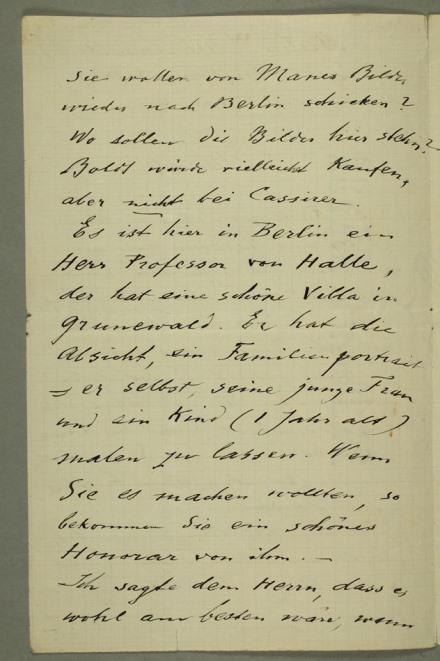 Sie wollen von Manes Bilder
wieder nach Berlin schicken?
Wo sollen die Bilder hier stehn?
Boldt würde vielleicht Kaufen,
aber nicht bei Cassirer.
Es ist hier in Berlin ein
Herr Professor von Halle,
der hat eine schöne Villa in
Grunewald. Er hat die
Absicht, ein Familienportrait
= er selbst, seine junge Frau
und ein Kind (1 Jahr alt)
malen zu lassen. Wenn
Sie es machen wollten, so
bekommen Sie ein schönes
Honorar von ihm. —
Ich sagte dem Herrn, dass es
wohl am besten wäre, wenn